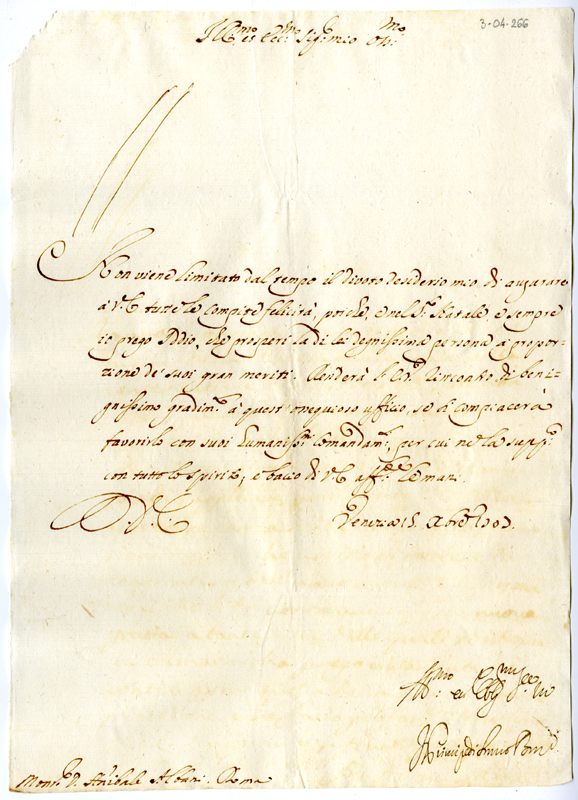 3-04-266
Ill.mo et Ecc.mo Sig.r mio Oss.mo
Non viene limitato dal tempo il divoto desiderio mio di augurare
à V.E. tutte le compite felicità, poiche, e nel S.mo Natale, e sempre
io prego Iddio, che prosperi la di lei degnissima persona à propor-
zione de' suoi gran meriti. Renderà l'E.V. l'incontro di beni-
gnissimo gradim.to à quest' ossequioso uffico, se si compiacerà
favorirlo con suoi humaniss.mi comandam.ti, per cui ne la supp.co
con tutto lo spirito, e bacio di V.E. aff.te le mani.
D. V. E. Venezia 15. Xbre 1703.
Mons.r D. Anibale Albani. Roma